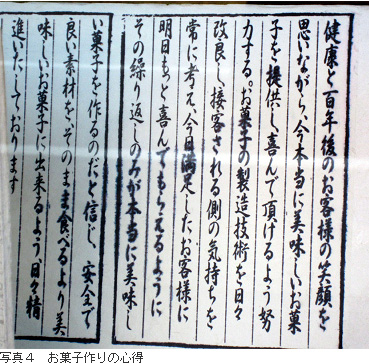 健康と百年後のお客様の笑顔を
思いながら、今本当に美味しいお菓
子を提供し、喜んで頂けるよう努
力する。お菓子の製造技術を日々
改良し、接客される側の気持ちを
常に考え、今日満足したお客様に
明日もっと喜んでもらえるように
その繰り返しのみが本当に美味し
い菓子を作るのだと信じ、安全で
良い素材を、そのまま食べるより美
味しいお菓子に出来るよう日々精
進いたしております
写真４　お菓子作りの心得